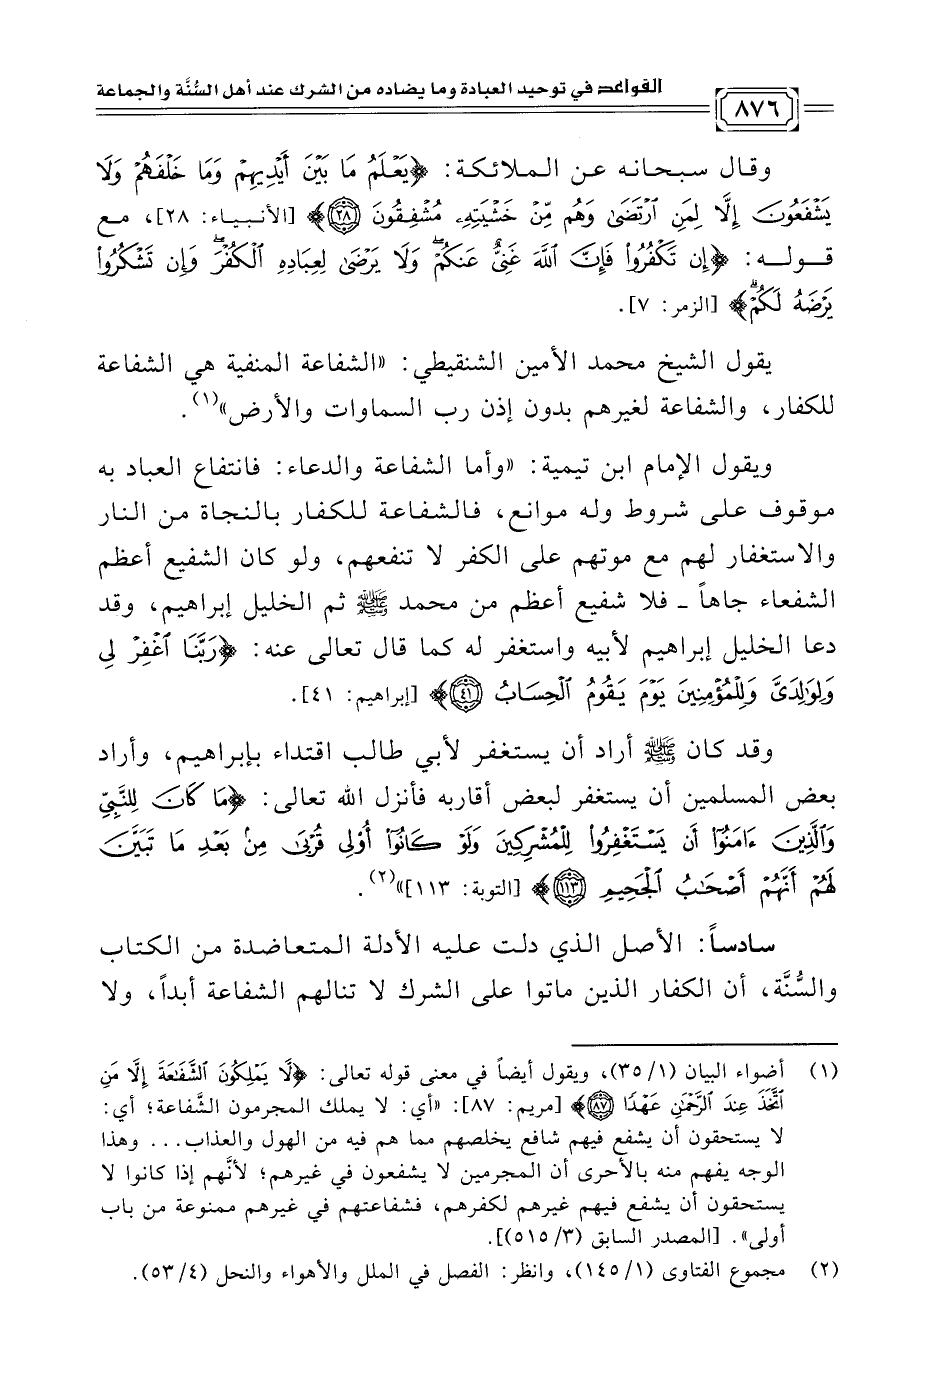 القواعد في توحيد العبادة وما يضاده من الشرك عند أهل السُّنَّة والجماعة
٨٧٦
وقال سبحانه عن الملائكة: ﴿يَعْلَمُ مَا بَيْنَ أَيْدِيهِمْ وَمَا خَلْفَهُمْ وَلَا
يَشْفَعُونَ إِلَّا لِمَنِ ٱرْتَضَىٰ وَهُم مِّنْ خَشْيَتِهِۦ مُشْفِقُونَ ٢٨﴾ [الأنبياء: ٢٨]، مع
قوله: ﴿إِن تَكْفُرُوا۟ فَإِنَّ ٱللَّهَ غَنِىٌّ عَنكُمْ ۖ وَلَا يَرْضَىٰ لِعِبَادِهِ ٱلْكُفْرَ ۖ وَإِن تَشْكُرُوا۟
يَرْضَهُ لَكُمْ ۗ﴾ [الزمر: ٧].
يقول الشيخ محمد الأمين الشنقيطي: «الشفاعة المنفية هي الشفاعة
للكفار، والشفاعة لغيرهم بدون إذن رب السماوات والأرض»(١).
ويقول الإمام ابن تيمية: «وأما الشفاعة والدعاء: فانتفاع العباد به
موقوف على شروط وله موانع، فالشفاعة للكفار بالنجاة من النار
والاستغفار لهم مع موتهم على الكفر لا تنفعهم، ولو كان الشفيع أعظم
الشفعاء جاهاً ـ فلا شفيع أعظم من محمد ﷺ ثم الخليل إبراهيم، وقد
دعا الخليل إبراهيم لأبيه واستغفر له كما قال تعالى عنه: ﴿رَبَّنَا ٱغْفِرْ لِى
وَلِوَٰلِدَىَّ وَلِلْمُؤْمِنِينَ يَوْمَ يَقُومُ ٱلْحِسَابُ ٤١﴾ [إبراهيم: ٤١].
وقد كان ﷺ أراد أن يستغفر لأبي طالب اقتداء بإبراهيم، وأراد
بعض المسلمين أن يستغفر لبعض أقاربه فأنزل الله تعالى: ﴿مَا كَانَ لِلنَّبِىِّ
وَٱلَّذِينَ ءَامَنُوٓا۟ أَن يَسْتَغْفِرُوا۟ لِلْمُشْرِكِينَ وَلَوْ كَانُوٓا۟ أُو۟لِى قُرْبَىٰ مِنۢ بَعْدِ مَا تَبَيَّنَ
لَهُمْ أَنَّهُمْ أَصْحَٰبُ ٱلْجَحِيمِ ١١٣﴾ [التوبة: ١١٣]»(٢).
سادساً: الأصل الذي دلت عليه الأدلة المتعاضدة من الكتاب
والسُّنَّة، أن الكفار الذين ماتوا على الشرك لا تنالهم الشفاعة أبداً، ولا
(١) أضواء البيان (١/ ٣٥)، ويقول أيضاً في معنى قوله تعالى: ﴿لَّا يَمْلِكُونَ ٱلشَّفَٰعَةَ إِلَّا مَنِ
ٱتَّخَذَ عِندَ ٱلرَّحْمَٰنِ عَهْدًا ٨٧﴾ [مريم: ٨٧]: «أي: لا يملك المجرمون الشَّفاعة؛ أي:
لا يستحقون أن يشفع فيهم شافع يخلصهم مما هم فيه من الهول والعذاب... وهذا
الوجه يفهم منه بالأحرى أن المجرمين لا يشفعون في غيرهم؛ لأنَّهم إذا كانوا لا
يستحقون أن يشفع فيهم غيرهم لكفرهم، فشفاعتهم في غيرهم ممنوعة من باب
أولى». [المصدر السابق (٣/ ٥١٥)].
(٢) مجموع الفتاوى (١/ ١٤٥)، وانظر: الفصل في الملل والأهواء والنحل (٤/ ٥٣).